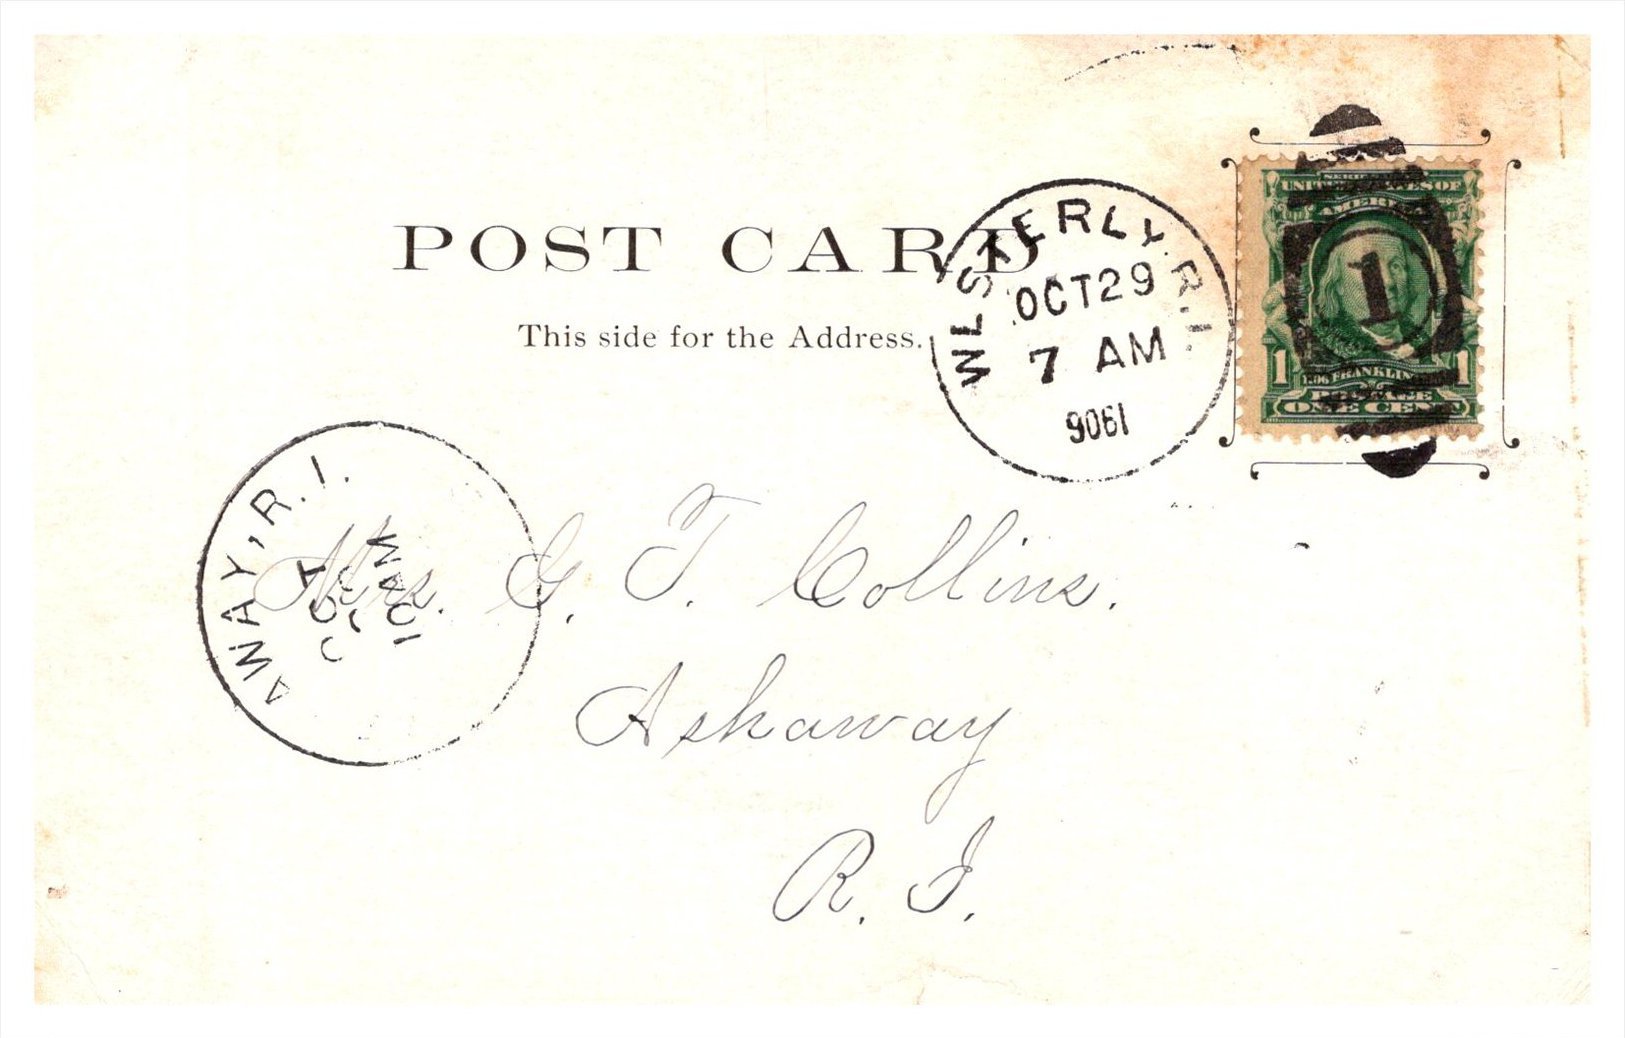 POST CARD
This side for the Address.
WESTERLY, R.I.
OCT 29
7 AM
1906
SERIES
UNITED STATES OF
AMERICA
1
1706 FRANKLIN
1
POSTAGE
ONE CENT
1
AWAY, R.I.
OCT
10 AM
Mrs. G. T. Collins.
Ashaway
R. I.